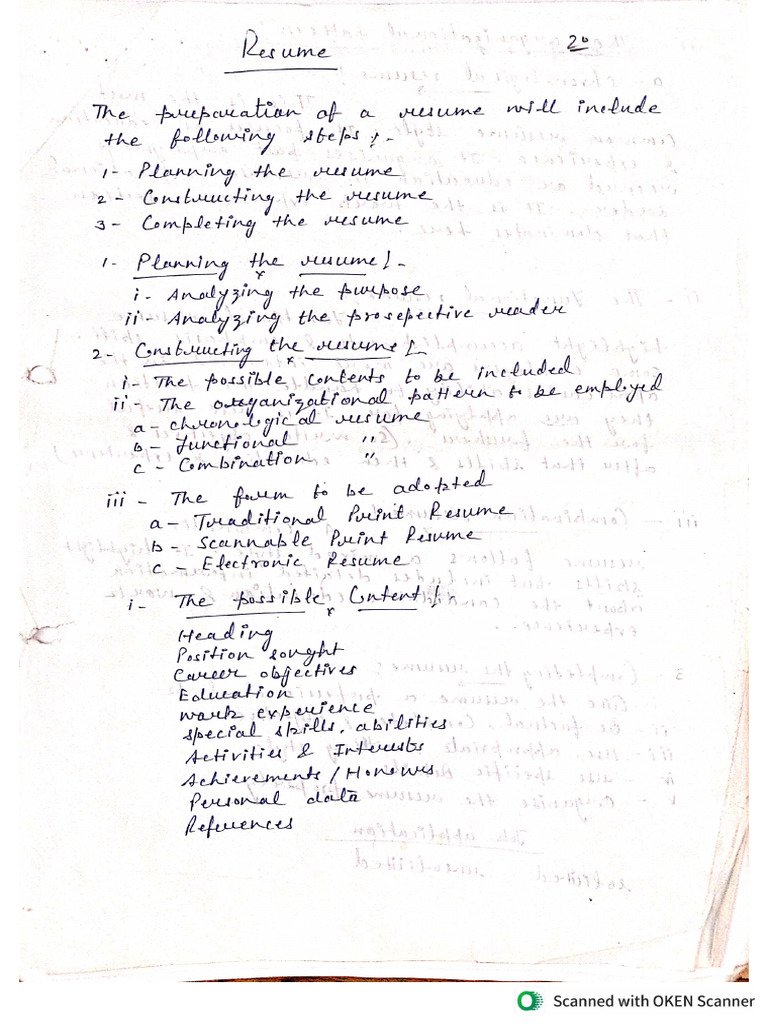 Resume
20
The preparation of a resume will include
the following steps :-
1- Planning the resume
2- Constructing the resume
3- Completing the resume
1- Planning the resume :-
i- Analyzing the purpose
ii- Analyzing the prosepective reader
2- Constructing the resume :-
i- The possible contents to be included
ii- The organizational pattern to be employed
a- chronological resume
b- functional "
c- Combination "
iii- The form to be adopted
a- Traditional Print Resume
b- Scannable Print Resume
c- Electronic Resume
i- The possible Content :-
Heading
Position sought
Career objectives
Education
work experience
special skills, abilities
Activities & Interests
Achievements / Honours
Personal data
References
Scanned with OKEN Scanner